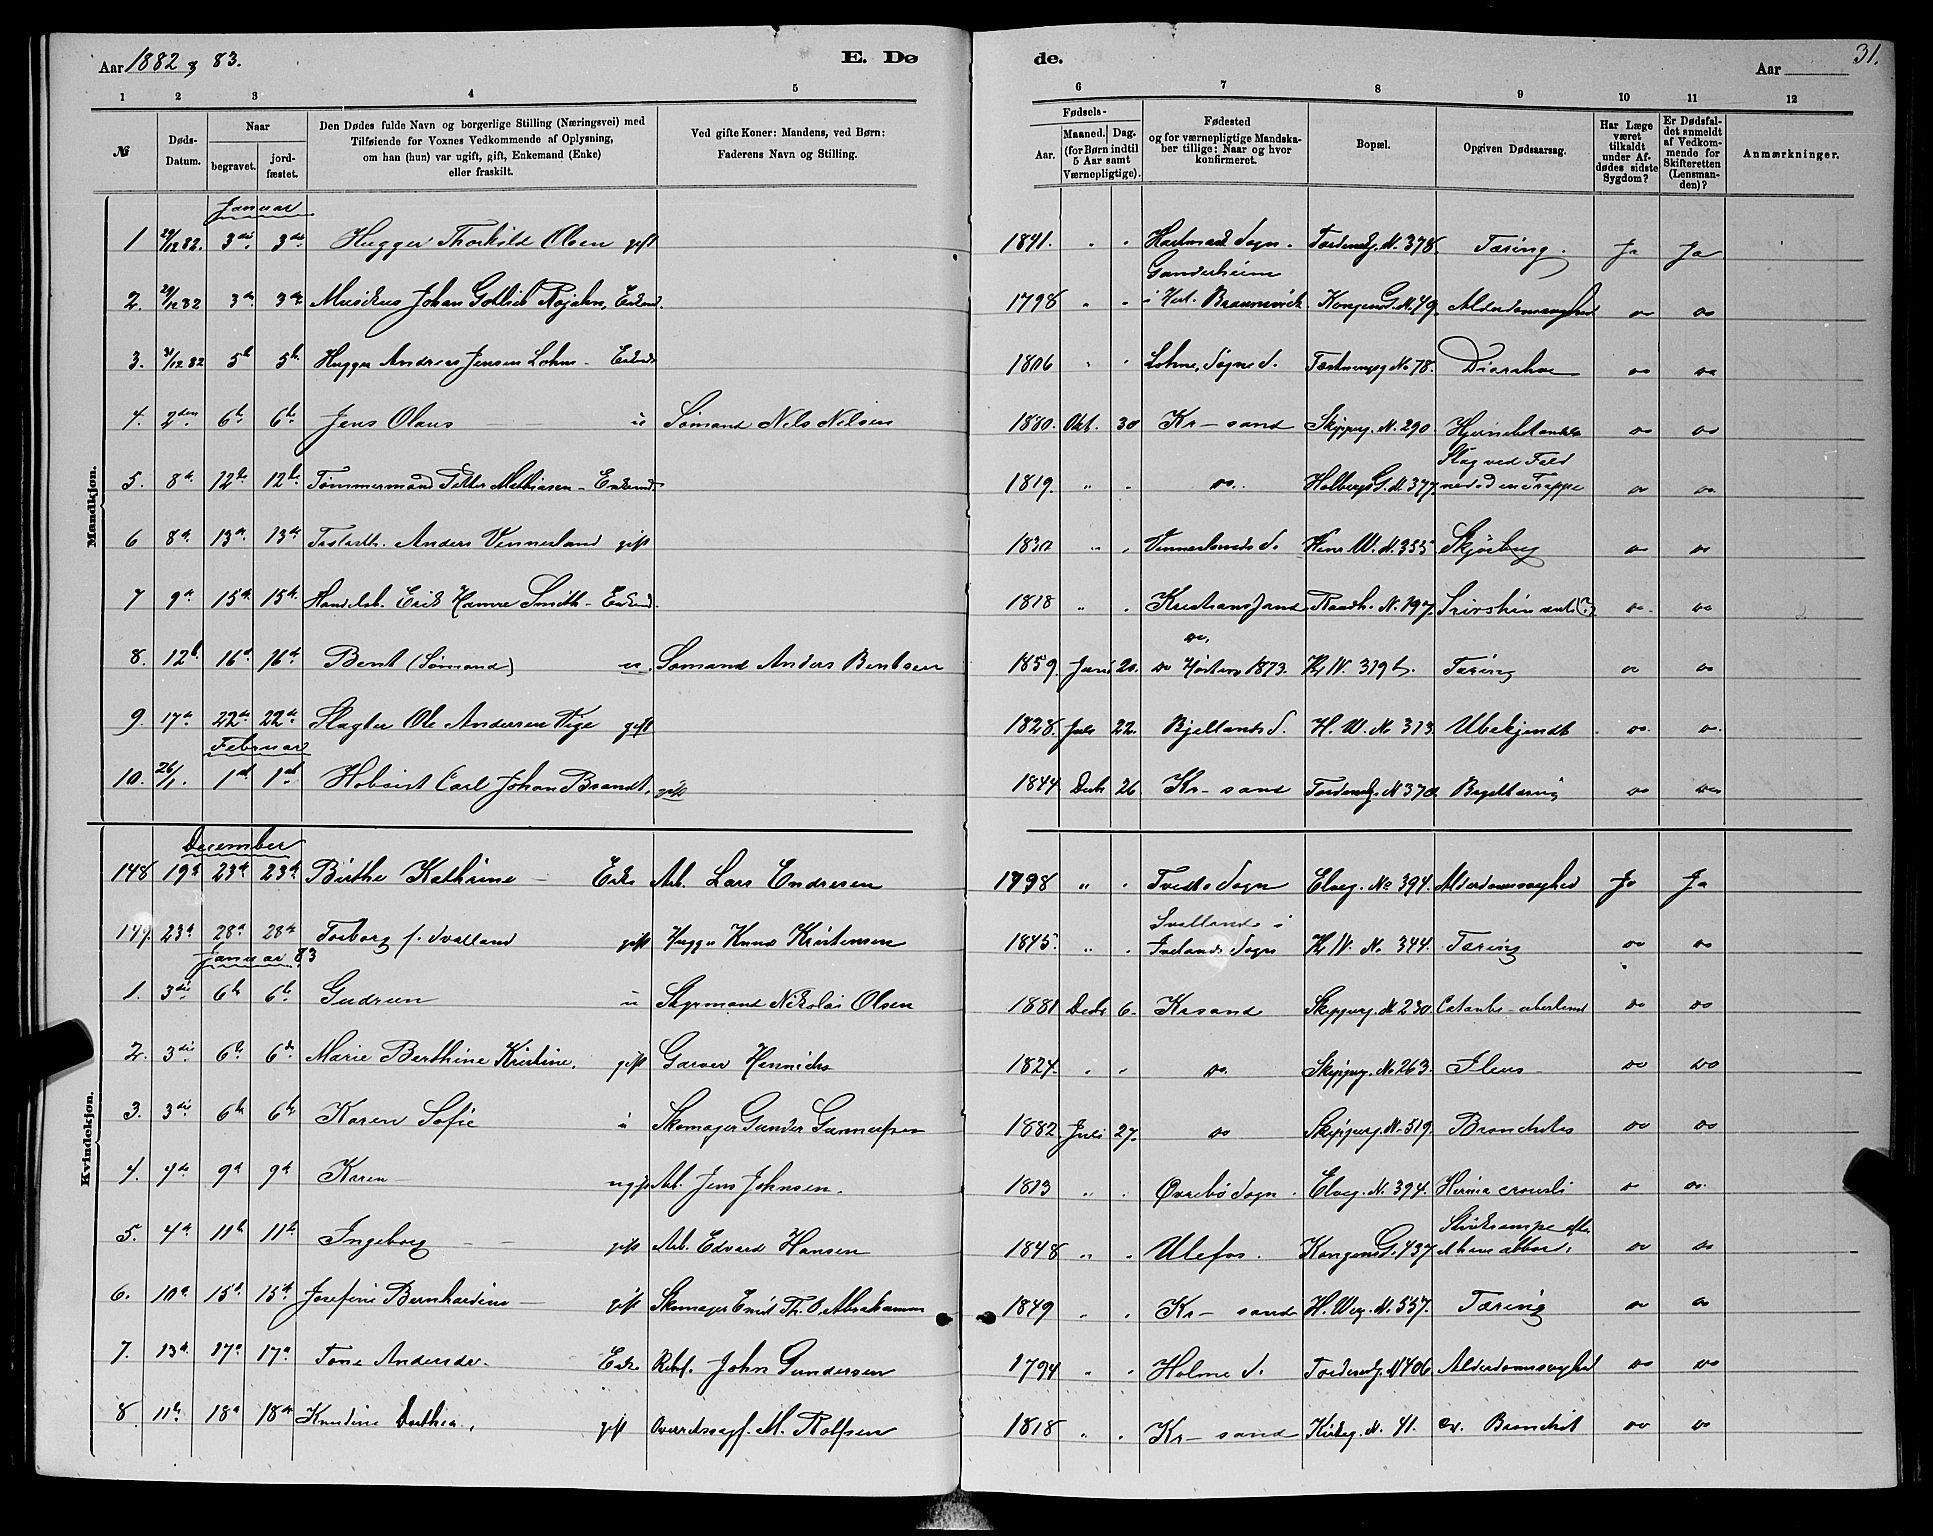 Aar 1882 & 83. E. Dø de. Aar 31.
1 2 3 4 5 6 7 8 9 10 11 12
№ Døds-Datum. Naar begravet. jord-fæstet.
Den Dødes fulde Navn og borgerlige Stilling (Næringsvei) med
Tilføiende for Voxnes Vedkommende af Oplysning,
om han (hun) var ugift, gift, Enkemand (Enke)
eller fraskilt.
Ved gifte Koner: Mandens, ved Børn:
Faderens Navn og Stilling.
Fødsels-
Aar. Maaned. Dag.
(for Børn indtil
5 Aar samt
Værnepligtige).
Fødested
og for værnepligtige Mandska-
ber tillige: Naar og hvor
konfirmeret.
Bopæl.
Opgiven Dødsaarsag.
Har Læge
været
tilkaldt
under Af-
dødes sidste
Sygdom?
Er Dødsfal-
det anmeldt
af Vedkom-
mende for
Skifteretten
(Lensman-
den)?
Anmærkninger.
Mandkjøn.
Januar
1 29/12 82. 3die 3die Hugger Thorkild Olsen gift 1841. " " Hartmark Sogn. Tordensg. N. 378. Tæring. Ja Ja
2. 29/12 82 3die 3die Musikus Johan Gottlieb Rojahn, Enkem. 1798 " " Ganderheim i Hert. Braunsveik Kongensg. N. 49. Alderdomssvaghed do do
3. 31/12 82 5te 5te Hugger Andreas Jensen Lohne - Enkem. 1806 " " Lohne, Søgne S. Fæstningsg No 78. Diarrhoe do do
4. 2den 6te 6te Jens Olaus u Sømand Nels Nilsen 1880. Okt. 30 Kr-sand Skipperg. N. 290 do do
5. 8de 12te 12te Tømmermand Petter Mathiasen - Enkem. 1819. " " do. Holbergs G. N. 377. Slag ved Fald ned ad en Trappe do do
6 8de 13de 13de Anders Vennesland gift " " Venneslands S. N. 355 do do
7 9de 15de 15de Handelsb. Erik Hamre Smith - Enkem. 1818 " " Kristianssand Raadh. N. 197. do do
8. 12te 16de 16de Bent (Sømand) u. Sømand Anders Bentsen 1859. Juni 20. do. do Høsten 1873. H. W. 319 b. Tæring do do
9. 17de 22de 22de Slagter Ole Andersen Vige gift 1828. Juli 22. Bjellands S. H. W. No 313. Ubekjendt do. do.
Februar
10. 26/1. 1ste 1ste Carl Johan Brandt, gift 1844 Decbr 26 Kr-sand Tordensg. N 370. Brysttæring do do
Kvindekjøn.
December
148 19de 23de 23de Birthe Kathrine - Enke Arb. Lars Endresen 1798 " " Tveits Sogn Elveg. No 394. Alderdomssvaghed Ja Ja
149. 23de 28de 28de Torborg f. Ivalland gift Hugger Knud Kristensen 1845. " " Ivelands Sogn H. W. No 344. Tæring do do
Januar 83
1. 3die 6te 6te Gudrun u Styrmand Nikolai Olsen 1881 Decbr 6. Krsand Skipperg. N 230. do do
2. 3die 6te 6te Marie Berthine Kristine, gift Garver Hennichs 1824. " " do. Skipperg. No 263. Ileus - do do
3. 3die 6te 6te Karen Sofie u Skomager Gunder Gunnufsen 1882. Juli 27. do Skipperg. N. 519. Bronchitis do do
4. 4de 9de 9de Karen - Arb. Jens Johnsen. 1813 " " Øvrebø Sogn. Elveg. N. 394. do do.
5. 4de 11te 11te Ingeborg gift Arb. Edvard Hansen 1848 " " Ulefos. Kongensg. 437 do do
6. 10de 15de 15de Josefine Bernhardine - gift Skomager Emil Th. O. Abrahamsen 1849 " " Kr-sand H. Weg. N. 557. Tæring do do
7. 13de 17de 17de Tone Andersdr. Enke John Gundersen 1794 " " Holme S. Tordensg. N 406. Alderdomssvaghed do do
8. 11te 18de 18de Knudine Dorthea, gift Overretssagf. M. Rolfsen 1818 " " Kr-sand Kirkeg. N. 41. Bronchit do do